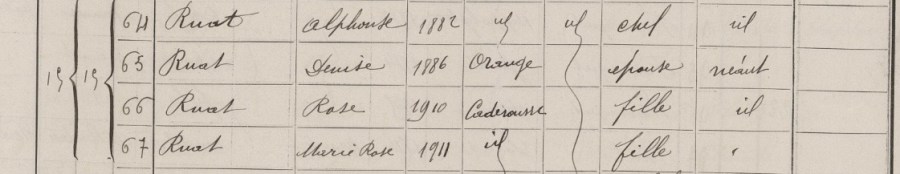 64 Ruat Alphonse 1882 id id chef id
19 19 65 Ruat Denise 1886 Orange épouse néant
66 Ruat Rose 1910 Caderousse fille id
67 Ruat Marie Rose 1911 id fille